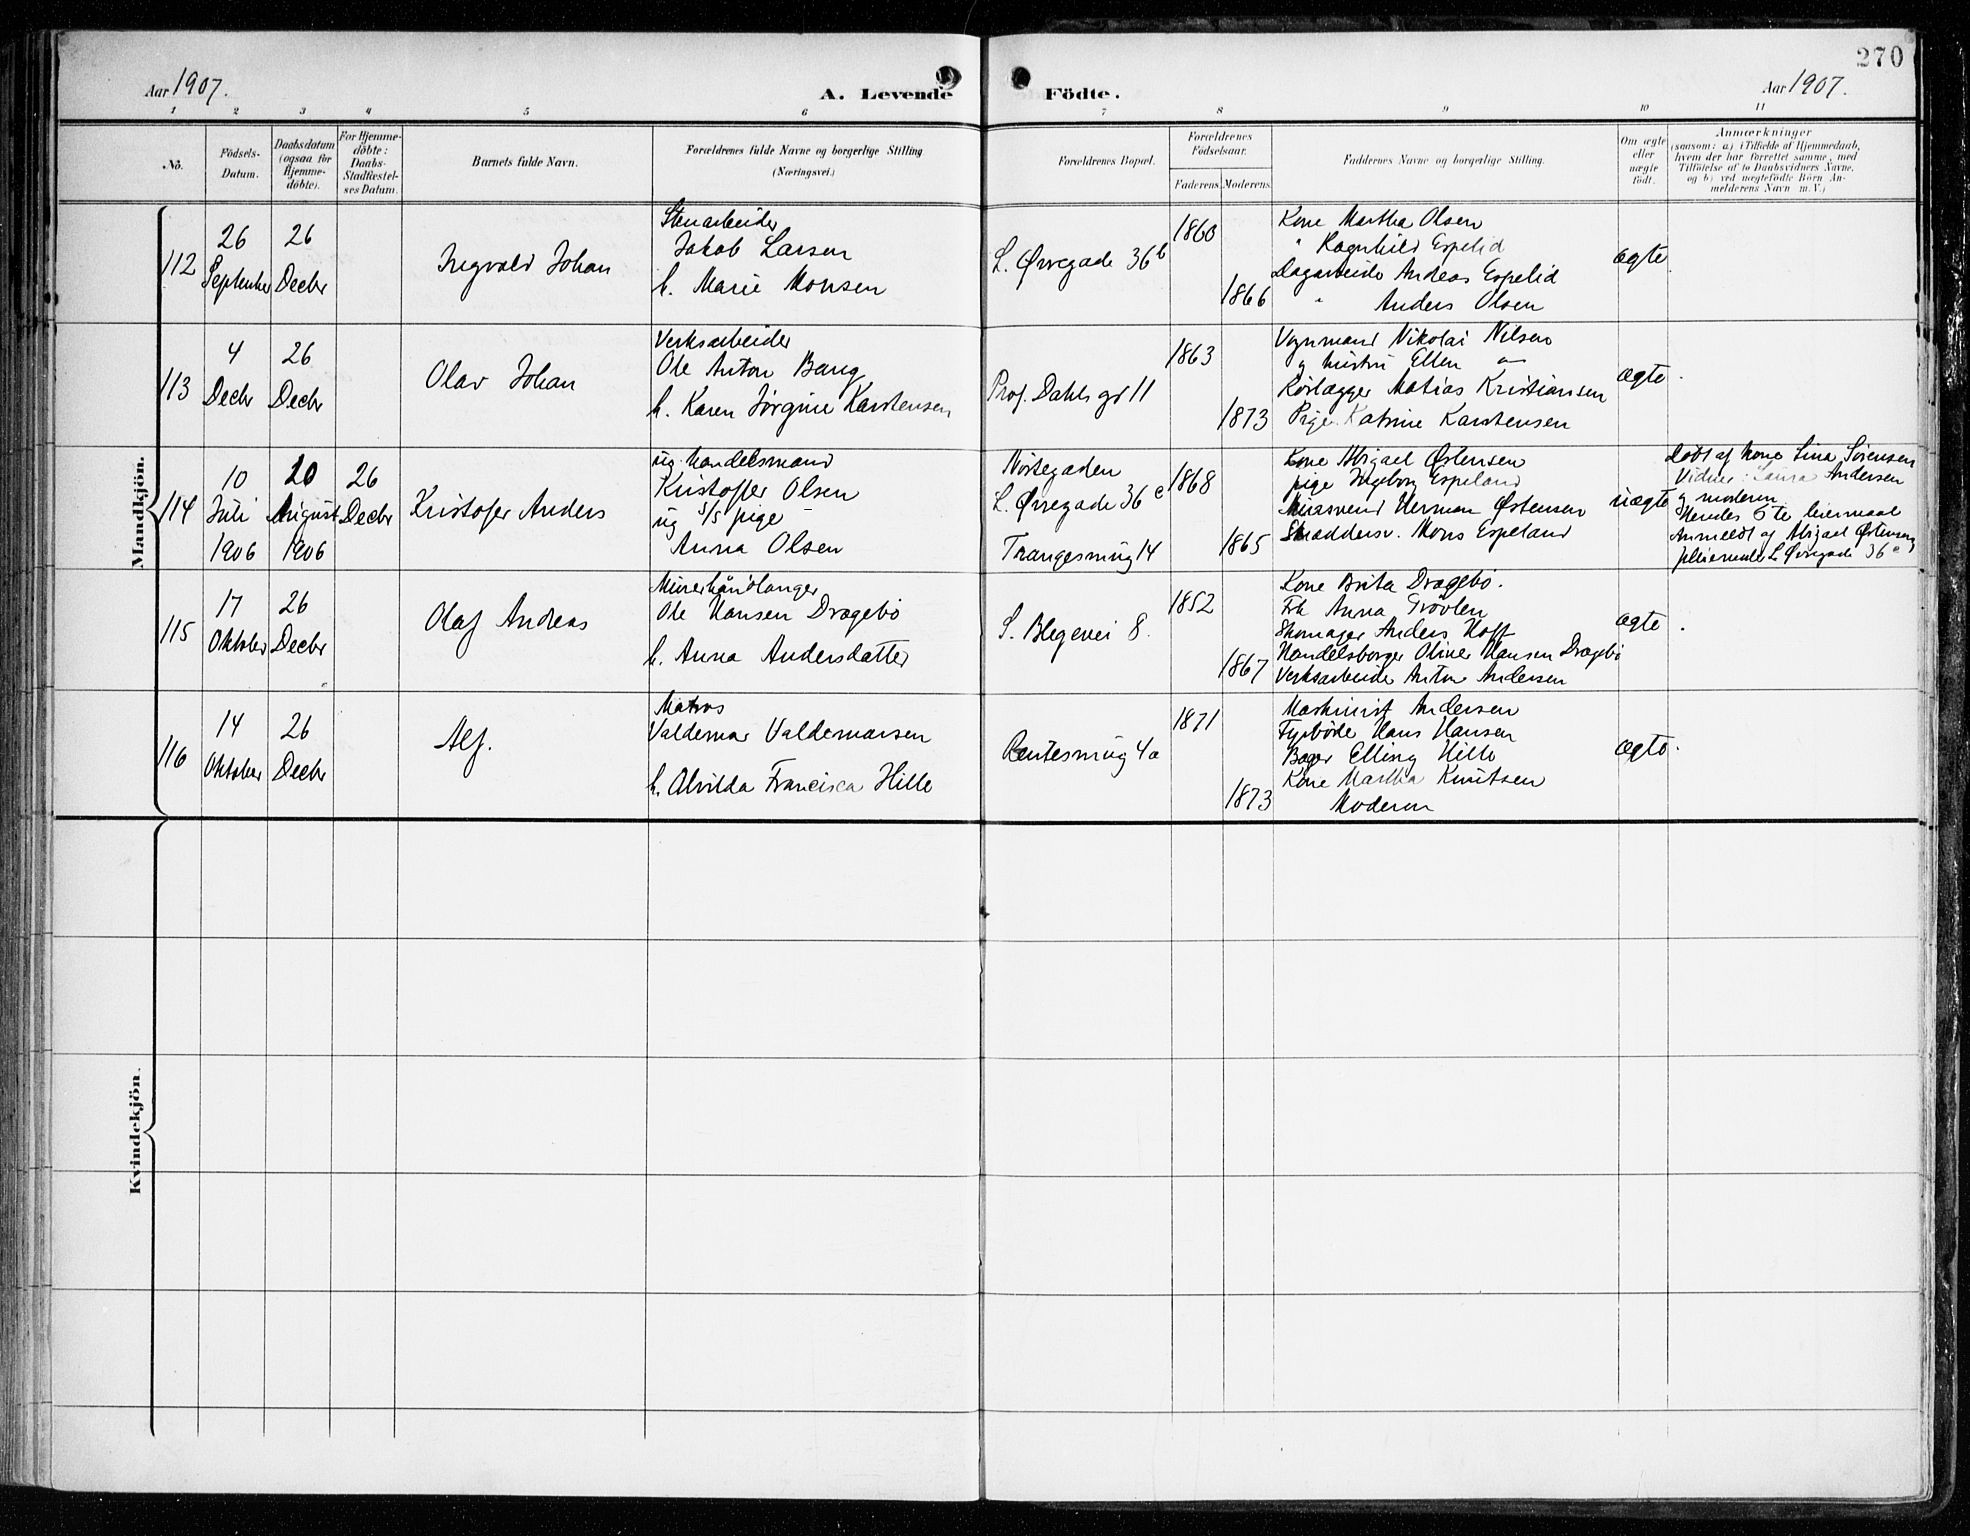 270
Aar 1907.
A. Levende Födte.
Aar 1907.
1 2 3 4 5 6 7 8 9 10 11
No.
Födsels-Datum.
Daabsdatum (ogsaa for Hjemme-döbte).
For Hjemme-döbte: Daabs-Stadfæstel-ses Datum.
Barnets fulde Navn.
Forældrenes fulde Navne og borgerlige Stilling
(Næringsvei.)
Forældrenes Bopæl.
Forældrenes Födselsaar.
Faderens. Moderens.
Faddernes Navne og borgerlige Stilling.
Om ægte eller uægte födt.
Anmærkninger
(saasom: a) i Tilfælde af Hjemmedaab,
hvem der har forrettet samme, med
Tilföielse af to Daabsvidners Navne,
og b) ved uægtefödte Börn An-
melderens Navn m. V.)
Mandkjön.
112
26 September
26 Decbr
Ingvald Johan
Stenarbeider
Jakob Larsen
h. Marie Monsen
L. Øvregade 36b
1860
1866
Kone Martha Olsen
" Ragnhild Espelid
Dagarbeider Andreas Espelid
" Anders Olsen
ægte
113
4 Decbr
26 Decbr
Olav Johan
Verksarbeider
Ole Anton Bang
h. Karen Jørgine Karstensen
Prof. Dahls gd 11
1863
1873
Vognmand Nikolai Nilsen
og hustru Ellen "
Rørlægger Matias Kristiansen
Pige Katrine Karstensen
ægte.
114
10 Juli 1906
20 August 1906
26 Decbr
Kristofer Anders
ug. handelsmand
Kristoffer Olsen
ug 5/5 pige
Anna Olsen
Nøstegaden
L. Øvregade 36c
Trangesmug 14
1868
1865
Kone Abigael Østensen
pige Ingeborg Espeland
Mursvend Herman Østensen
Skræddersv. Mons Espeland
uægte
Døbt af Kone Lina Sørensen
Vidne: Laura Andersen
og moderen
Hendes 5te leiermaal
Anmeldt af Abigael Østensen
pleiemoder L Øvregade 36c
115
17 Oktober
26 Decbr
Olaf Andreas
Murerhåndlanger
Ole Hansen Dragebø
h. Anna Andersdatter
S. Blegevei 8.
1852
1867
Kone Brita Dragebø.
Frk Anna Grøvlen
Skomager Anders Hoff
Handelsborger Oliver Hansen Dragebø
Verksarbeider Anton Andersen
ægte.
116
14 Oktober
26 Decbr
Alf.
Matros
Valdemar Valdemarsen
h. Alvilda Francisca Hille
Rentesmug 4a
1871
1873
Maskinist Andersen
Fyrbøder Hans Hansen
Bager Elling Hille
Kone Martha Knutsen
Moderen
ægte.
Kvindekjön.